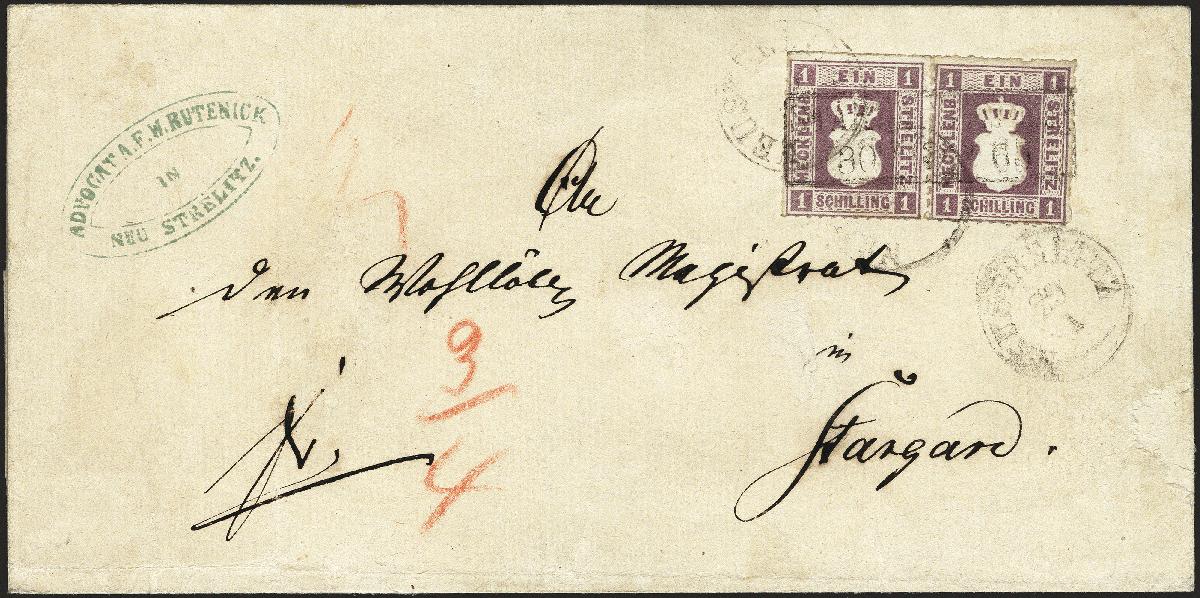 ADVOCAT A.F.W. RUTENICK
IN
NEU STRELITZ.
1 EIN 1
MECKLENB.
STRELITZ
1 SCHILLING 1
1 EIN 1
MECKLENB.
STRELITZ
1 SCHILLING 1
30
An
den Wohllöbl.
Magistrat
in
Stargard.
3
4